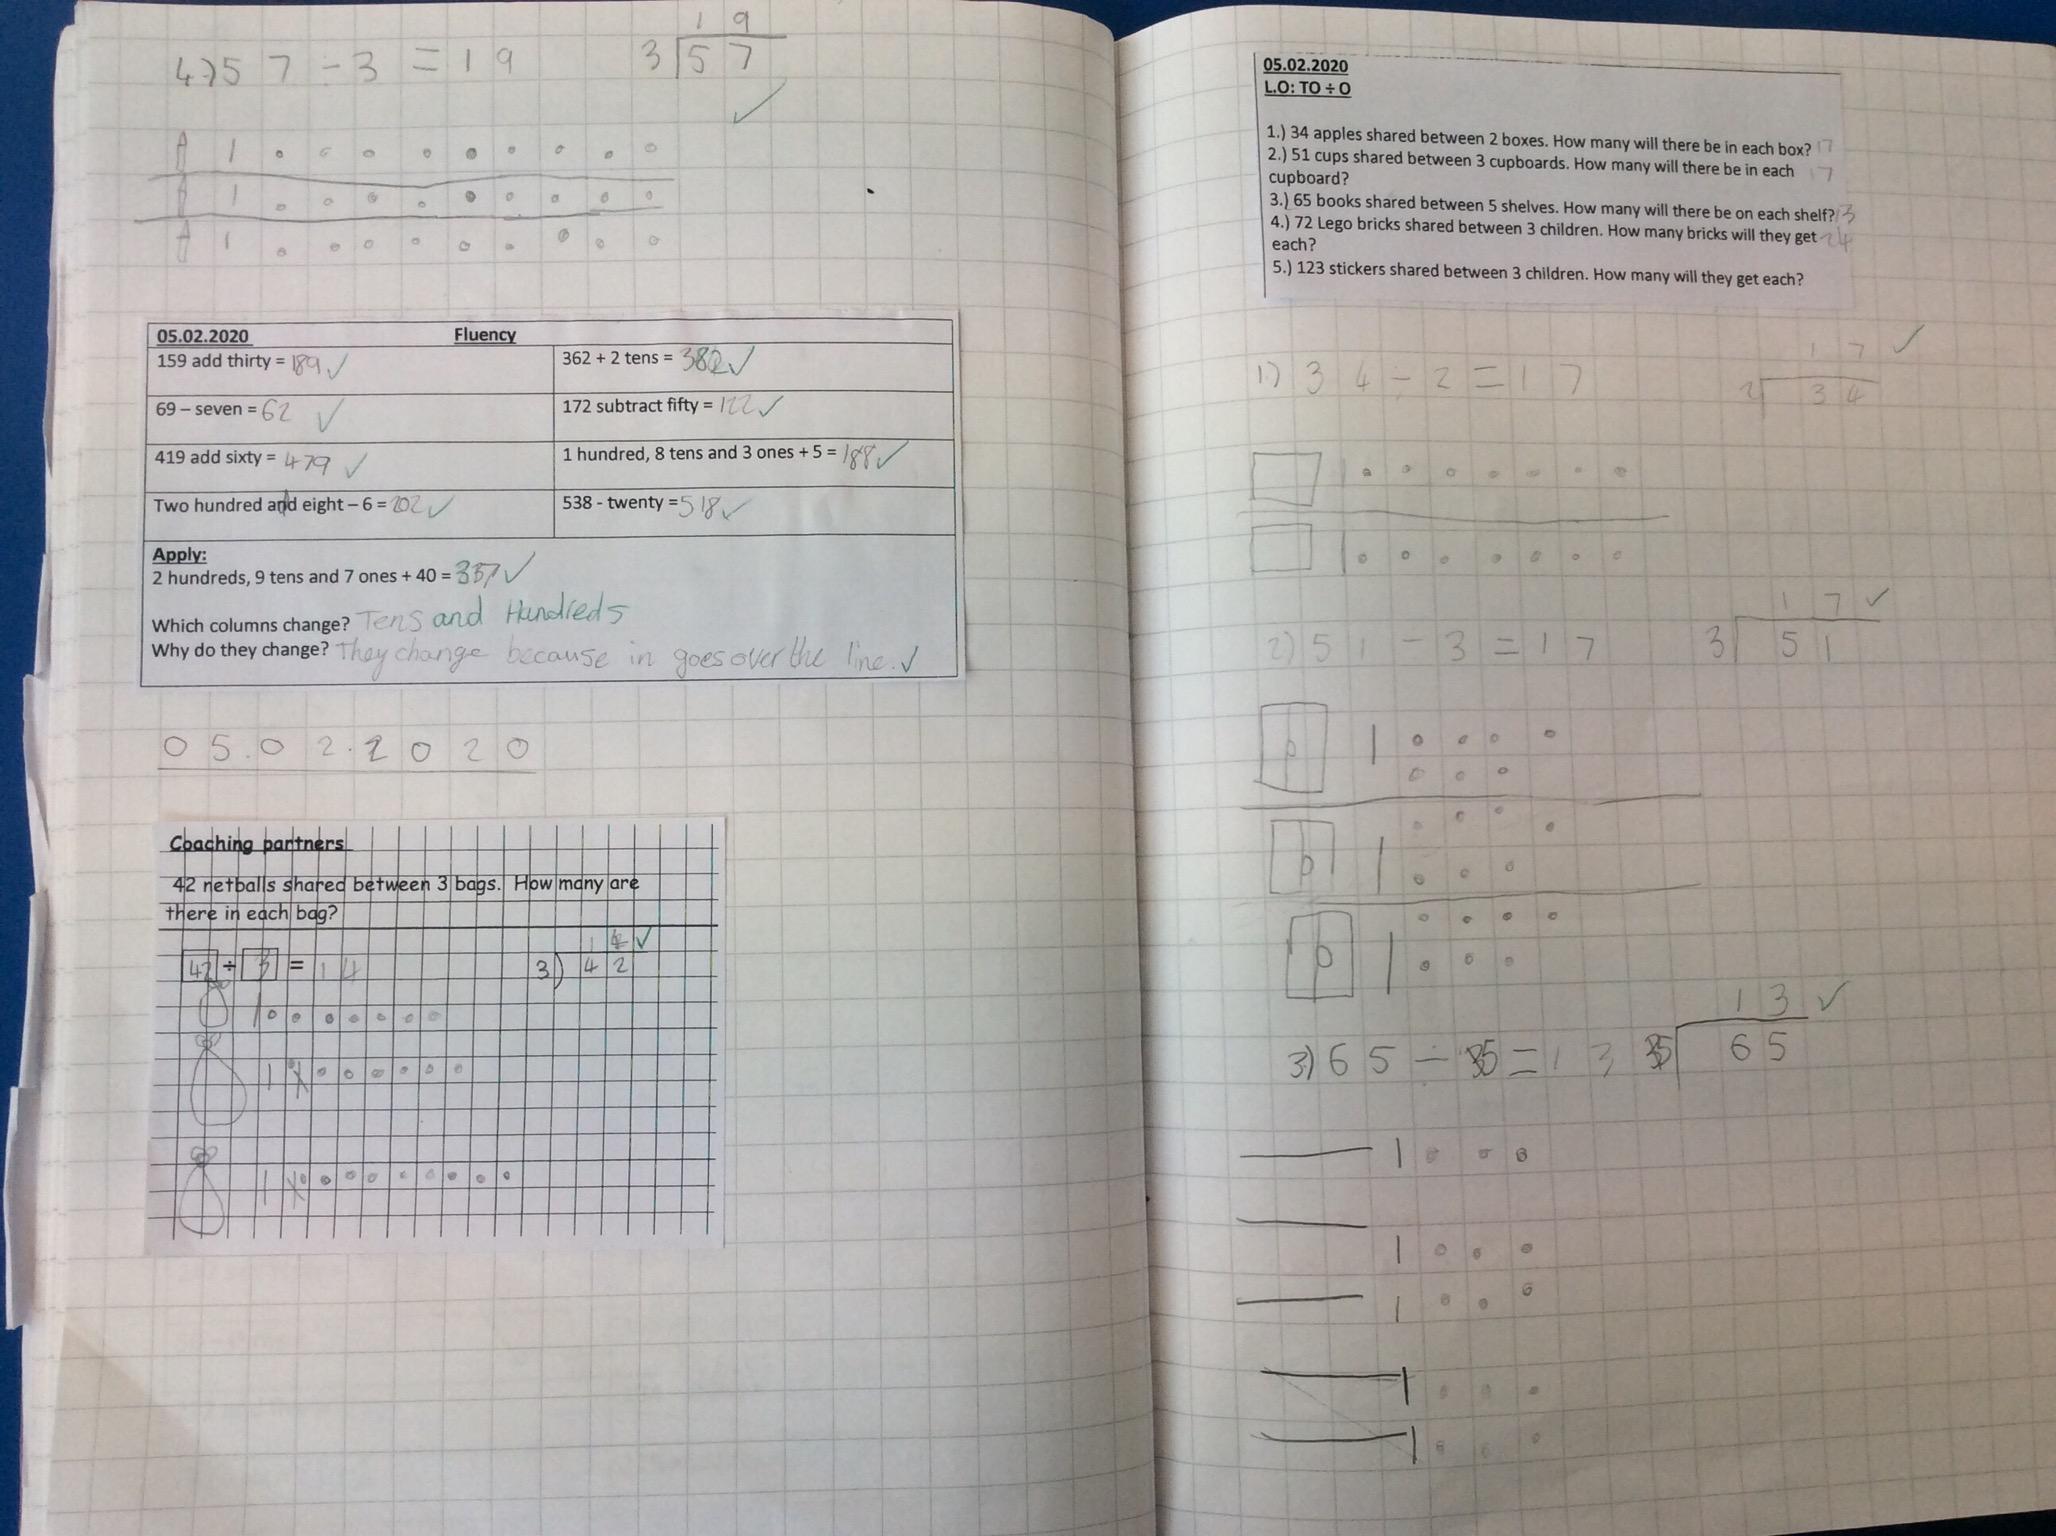 4.) 57 ÷ 3 = 19
19
3 57 ✓
05.02.2020 Fluency
159 add thirty = 189 ✓
362 + 2 tens = 382 ✓
69 – seven = 62 ✓
172 subtract fifty = 122 ✓
419 add sixty = 479 ✓
1 hundred, 8 tens and 3 ones + 5 = 188 ✓
Two hundred and eight – 6 = 202 ✓
538 - twenty = 518 ✓
Apply:
2 hundreds, 9 tens and 7 ones + 40 = 337 ✓
Which columns change? Tens and Hundreds
Why do they change? They change because in goes over the line. ✓
05.02.2020
Coaching partners
42 netballs shared between 3 bags. How many are
there in each bag?
14 ✓
42 ÷ 3 = 14
3) 42
05.02.2020
L.O: TO ÷ O
1.) 34 apples shared between 2 boxes. How many will there be in each box? 17
2.) 51 cups shared between 3 cupboards. How many will there be in each 17
cupboard?
3.) 65 books shared between 5 shelves. How many will there be on each shelf? 13
4.) 72 Lego bricks shared between 3 children. How many bricks will they get 24
each?
5.) 123 stickers shared between 3 children. How many will they get each?
17 ✓
1.) 34 ÷ 2 = 17
2 34
17 ✓
2) 51 ÷ 3 = 17
3 51
b
b
b
13 ✓
3.) 65 ÷ 5 = 13
5 65